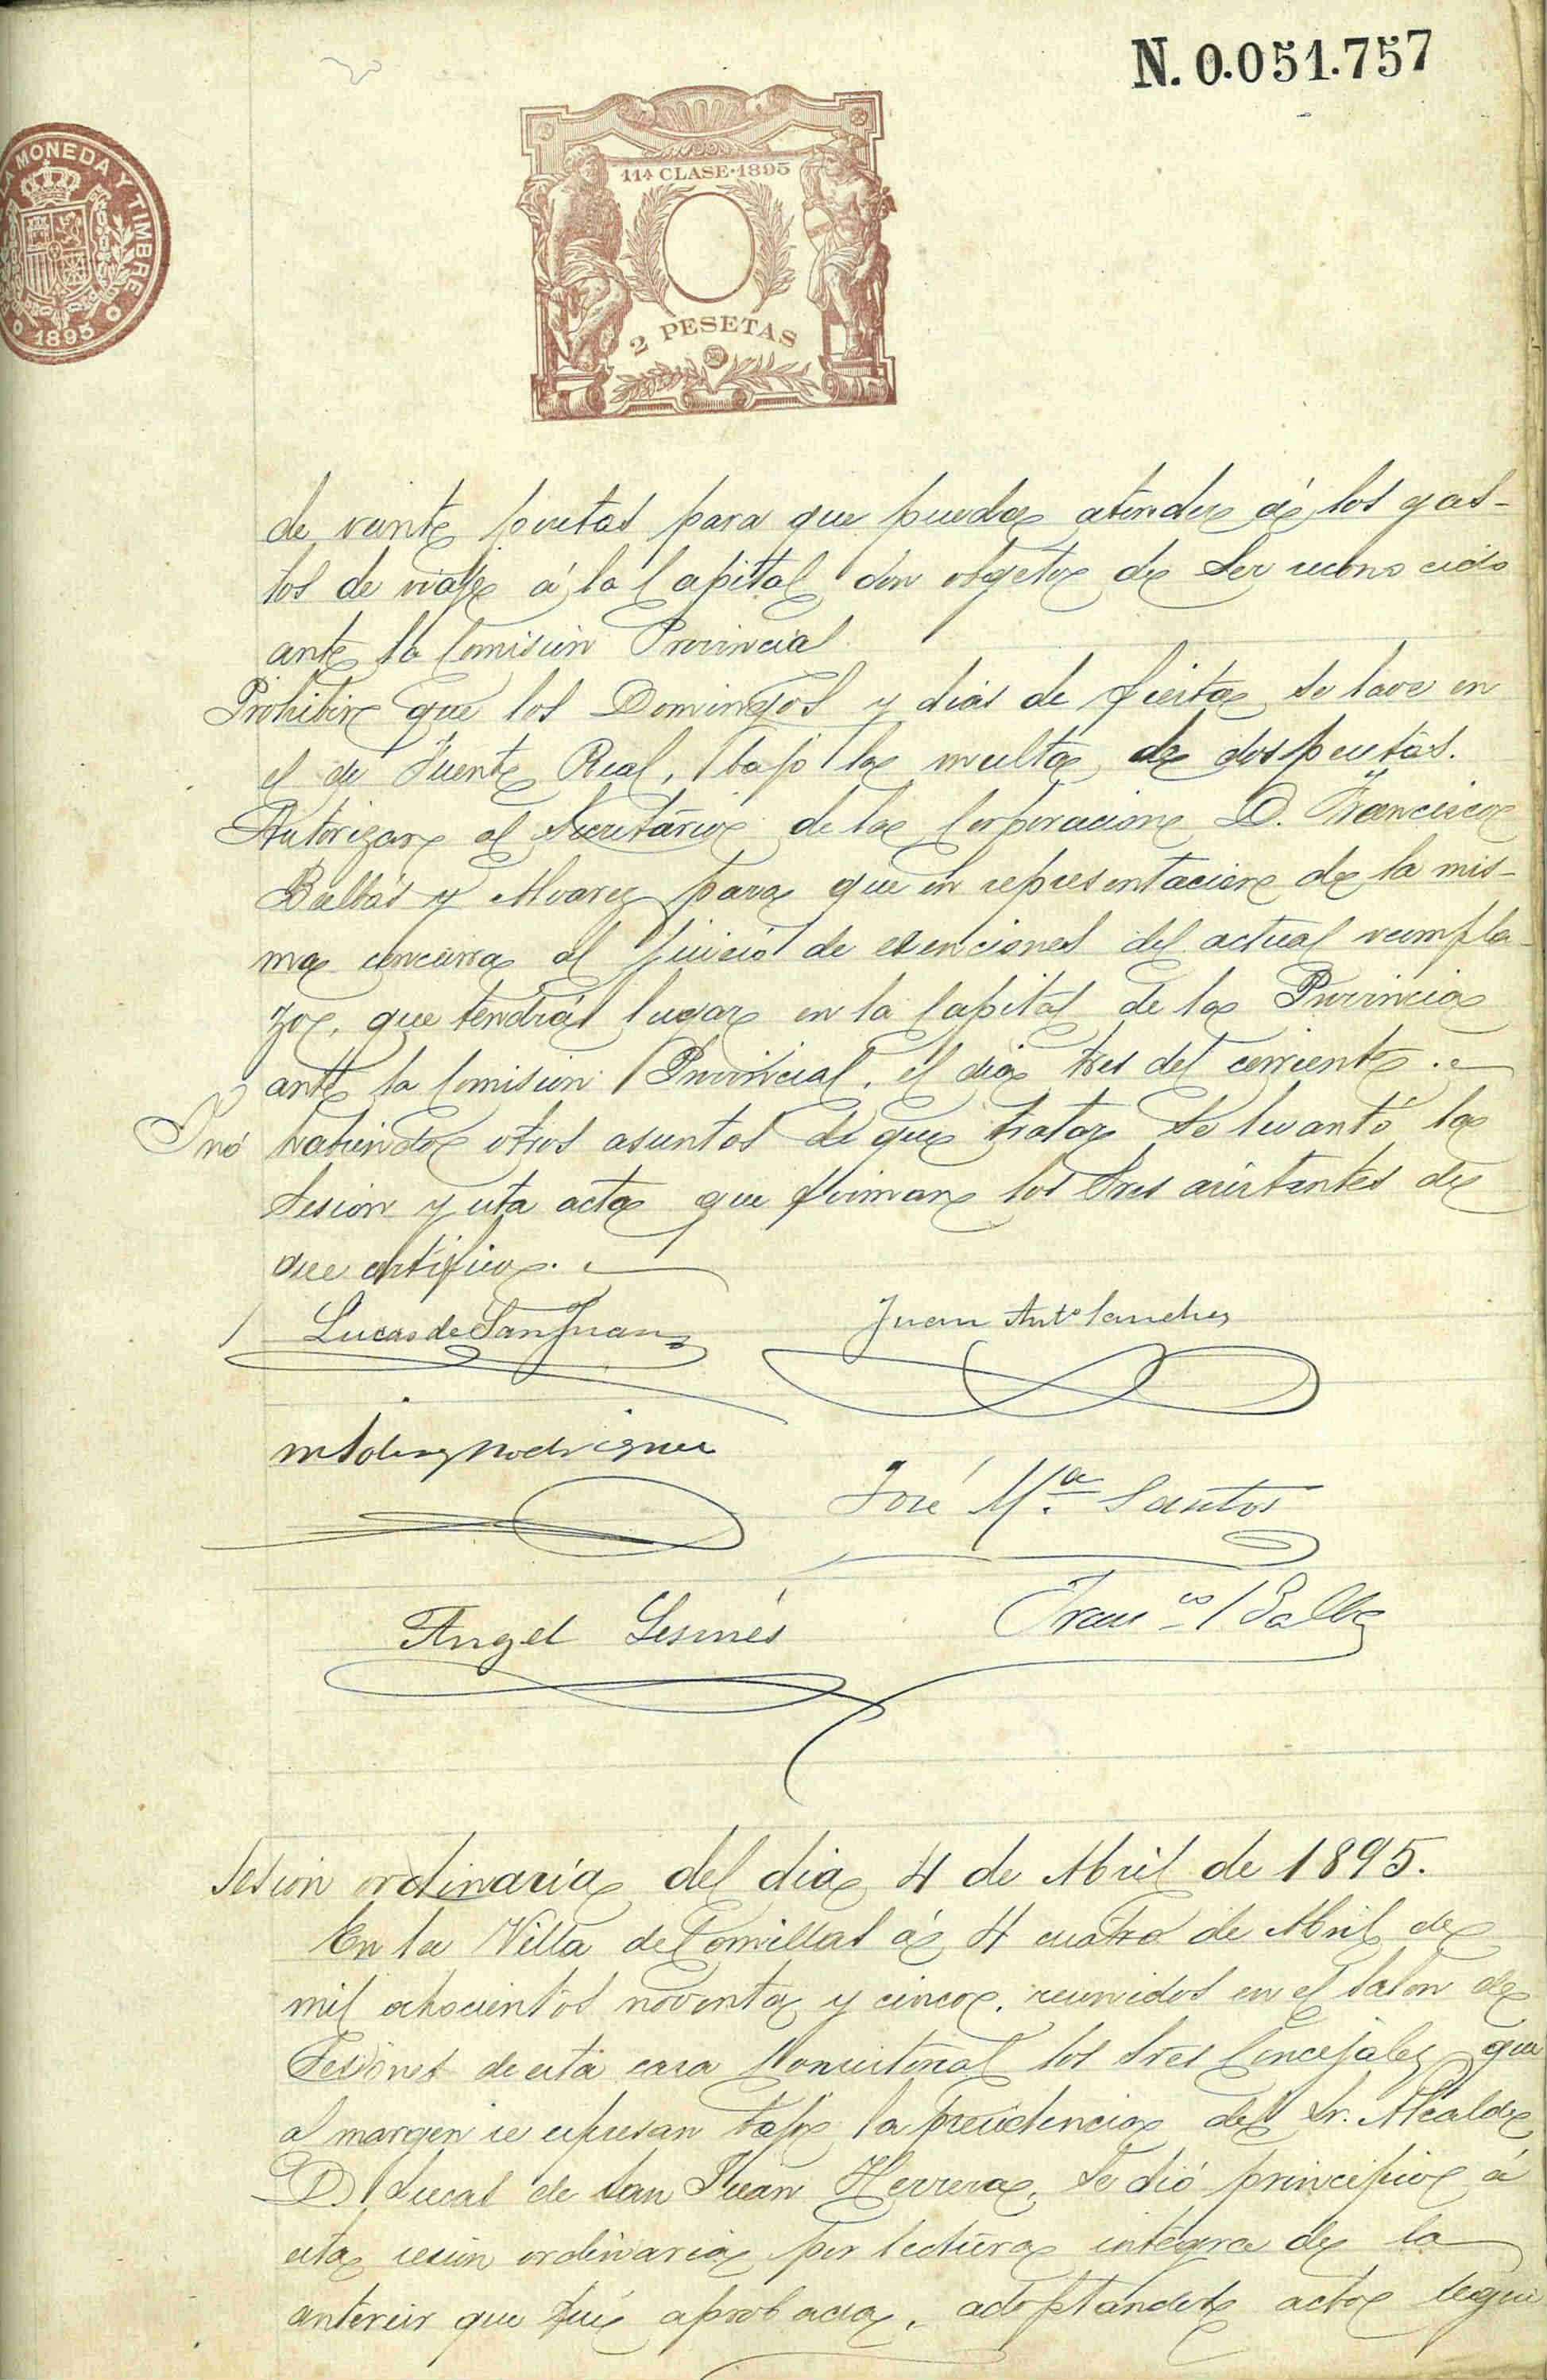 N. 0.051.757
LA MONEDA Y TIMBRE
1895
11ª CLASE·1895
2 PESETAS
de veinte pesetas para que pueda atender á los gas-
tos de viaje á la Capital con objeto de ser reconocido
ante la Comisión Provincial
Prohibir que los Domingos y dias de fiesta se lave en
el de Fuente Real, bajo la multa de dos pesetas.
Autorizar al Secretario de la Corporacion D. Francisco
Balbás y Alvarez para que en representacion de la mis-
ma concurra al juicio de exenciones del actual reempla-
zo, que tendrá lugar en la Capital de la Provincia
ante la Comision Provincial, el dia tres del corriente.
Y no habiendo otros asuntos de que tratar se levantó la
sesion y esta acta que firman los Sres asistentes de
que certifico.
Lucas de San Juan
Juan Antº Sanchez
Rodriguez
José Mª Santos
Angel Lesmés
Franco Balbás
Sesion ordinaria del dia 4 de Abril de 1895.
En la Villa de Comillas á 4 cuatro de Abril de
mil ochocientos noventa y cinco, reunidos en el Salon de
Sesiones de esta casa Consistorial los Sres Concejales que
al margen se expresan bajo la presidencia del Sr. Alcalde
D. Lucas de San Juan Herrera, se dió principio á
esta sesion ordinaria por lectura integra de la
anterior que fué aprobada, adoptandose acto segui